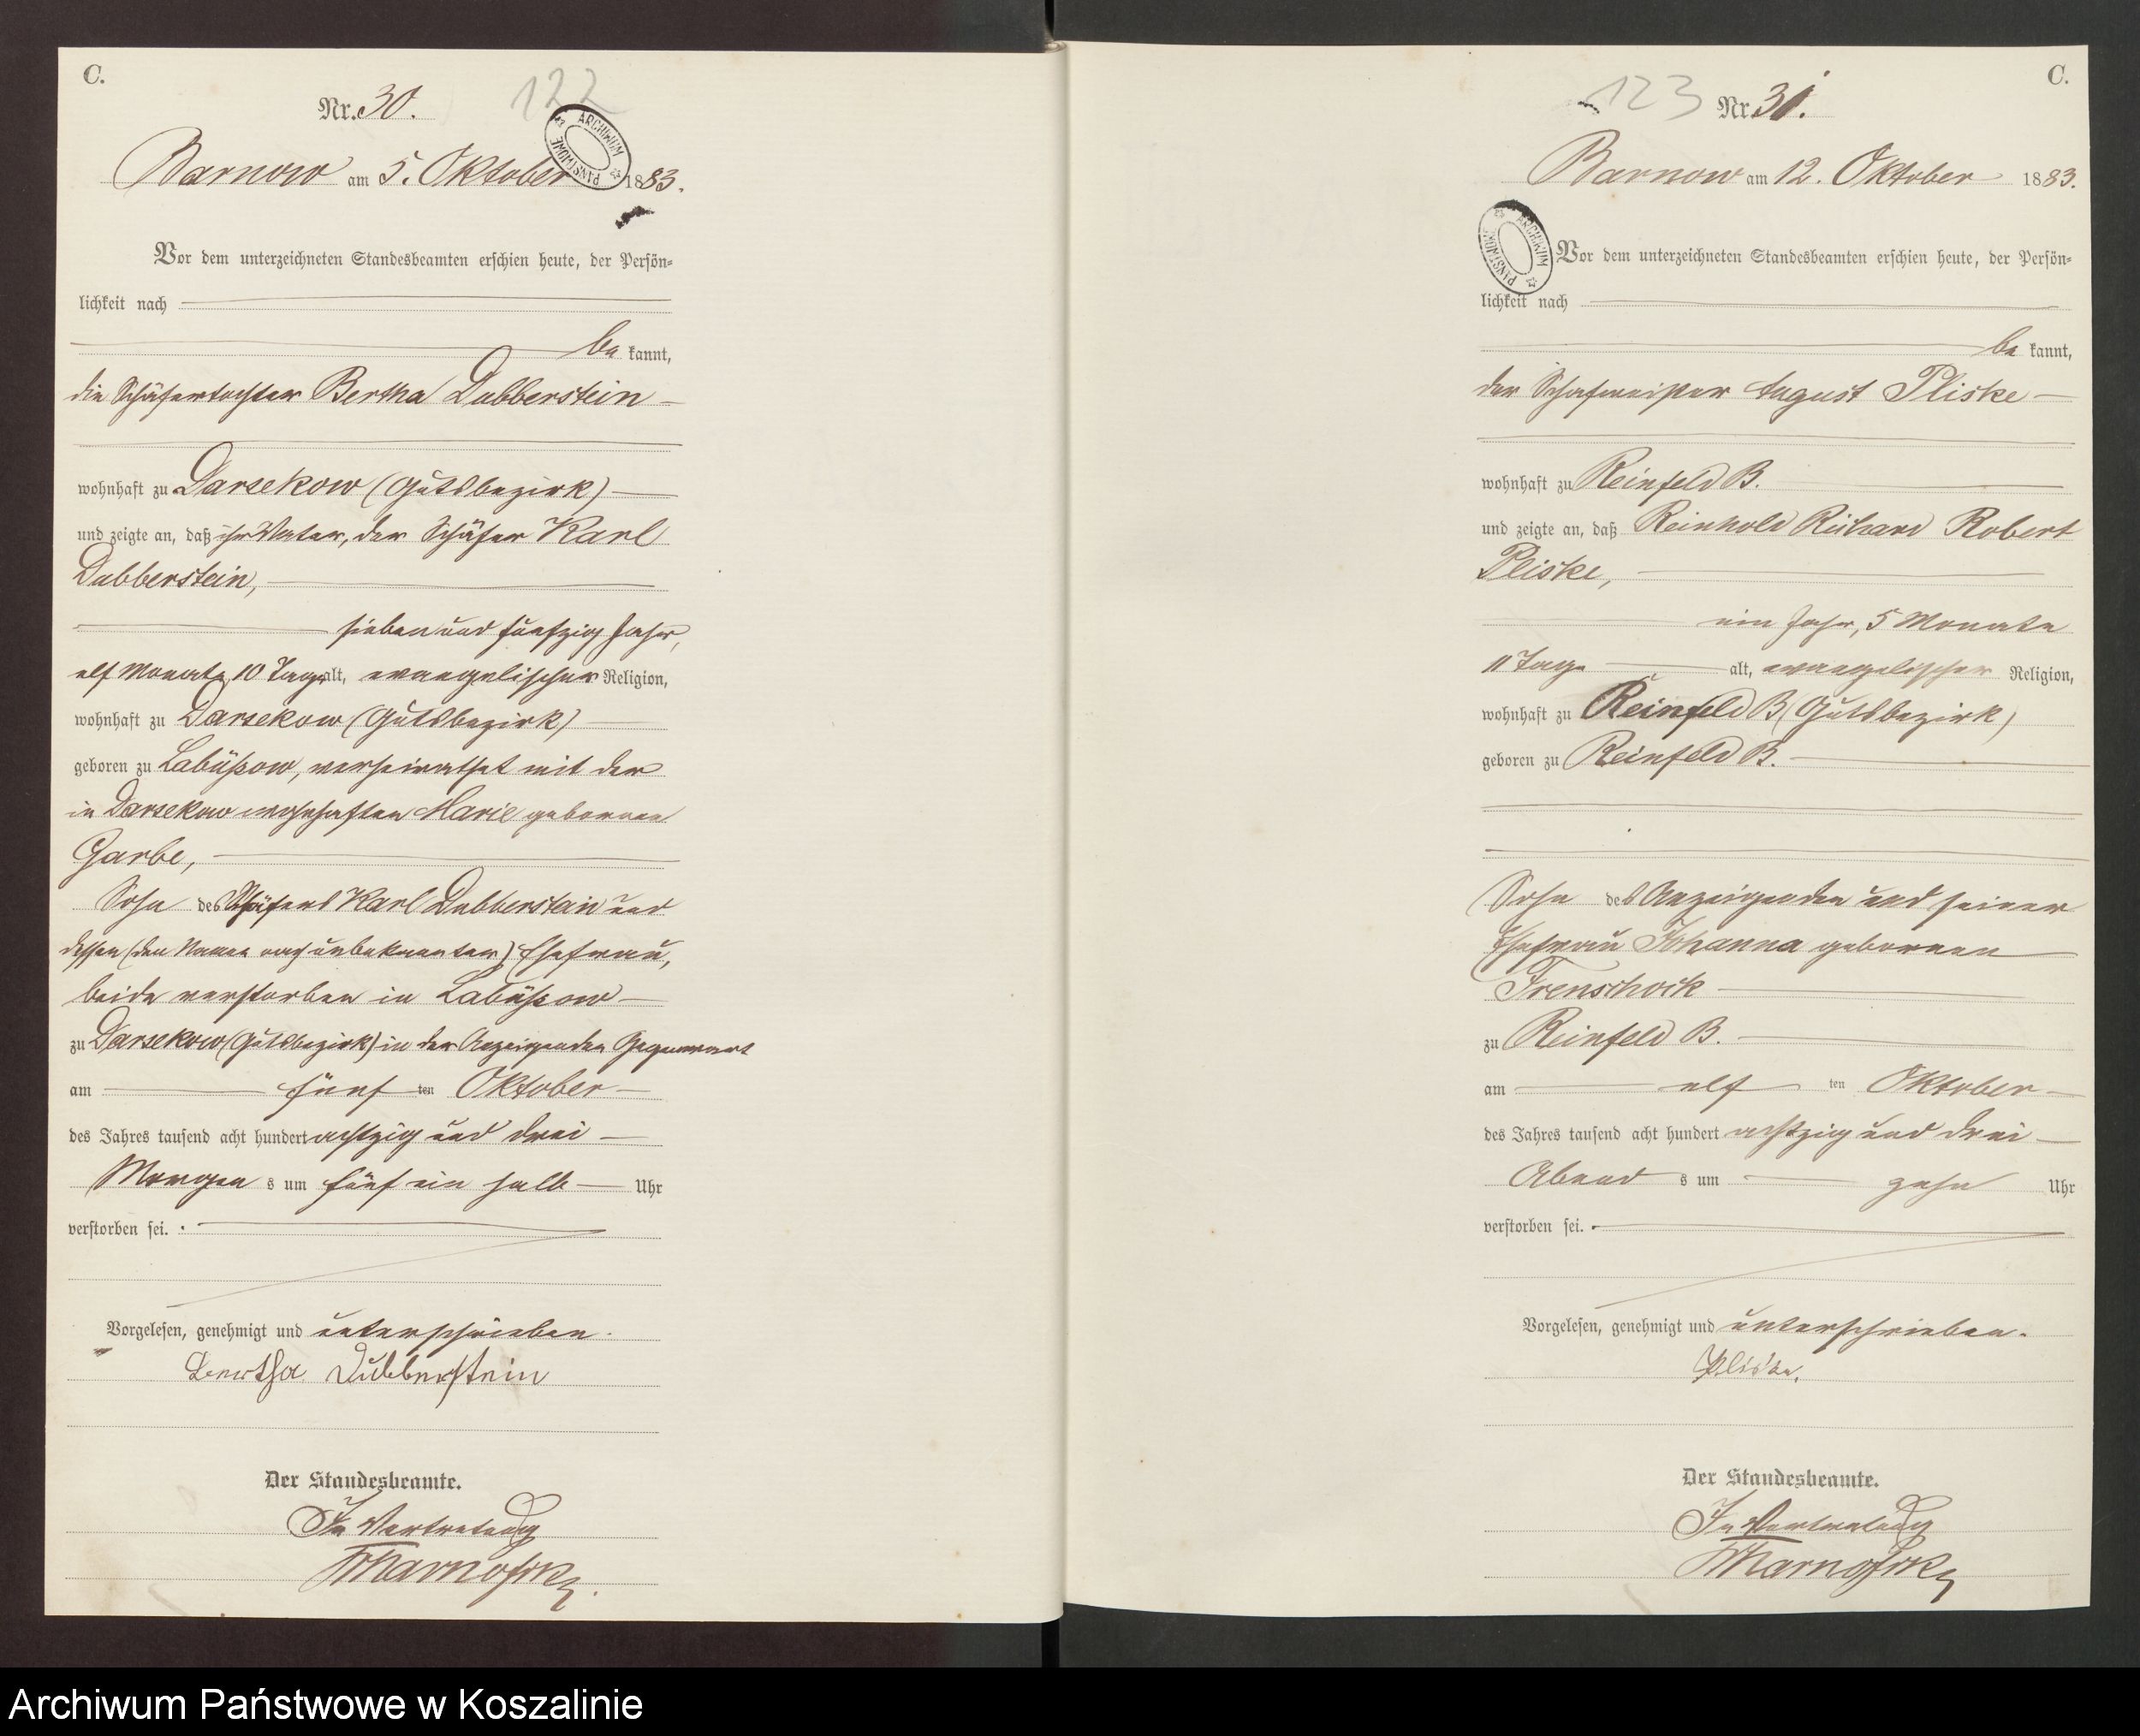 C.
Nr. 30.
122
ARCHIWUM PAŃSTWOWE
Barnow am 5. Oktober 1883.
Vor dem unterzeichneten Standesbeamten erschien heute, der Persön-
lichkeit nach
be kannt,
die Schäfertochter Bertha Dubberstein
wohnhaft zu Darsekow (Gutsbezirk)
und zeigte an, daß ihr Vater, der Schäfer Karl
Dubberstein,
sieben und fünfzig Jahr,
elf Monate 10 Tage alt, evangelischer Religion,
wohnhaft zu Darsekow (Gutsbezirk)
geboren zu Labüssow, verheirathet mit der
in Darsekow wohnhaften Marie geborenen
Garbe,
Sohn des Schäfers Karl Dubberstein und
dessen (dem Namen nach unbekannten) Ehefrau,
beide verstorben in Labüssow
zu Darsekow (Gutsbezirk) in der Anzeigenden Gegenwart
am fünf ten Oktober
des Jahres tausend acht hundert achtzig und drei
Morgen s um fünf ein halb Uhr
verstorben sei.
Vorgelesen, genehmigt und unterschrieben.
Bertha Dubberstein
Der Standesbeamte.
In Vertretung
C.
123
Nr. 31.
Barnow am 12. Oktober 1883.
ARCHIWUM PAŃSTWOWE
Vor dem unterzeichneten Standesbeamten erschien heute, der Persön-
lichkeit nach
be kannt,
der Schafmeister August Pliske
wohnhaft zu Reinfeld B.
und zeigte an, daß Reinhold Richard Robert
Pliske,
ein Jahr, 5 Monate
11 Tage alt, evangelischer Religion,
wohnhaft zu Reinfeld B (Gutsbezirk)
geboren zu Reinfeld B.
Sohn des Anzeigenden und seiner
Ehefrau Johanna geborenen
zu Reinfeld B.
am elf ten Oktober
des Jahres tausend acht hundert achtzig und drei
Abend s um zehn Uhr
verstorben sei.
Vorgelesen, genehmigt und unterschrieben.
Pliske.
Der Standesbeamte.
In Vertretung
Archiwum Państwowe w Koszalinie